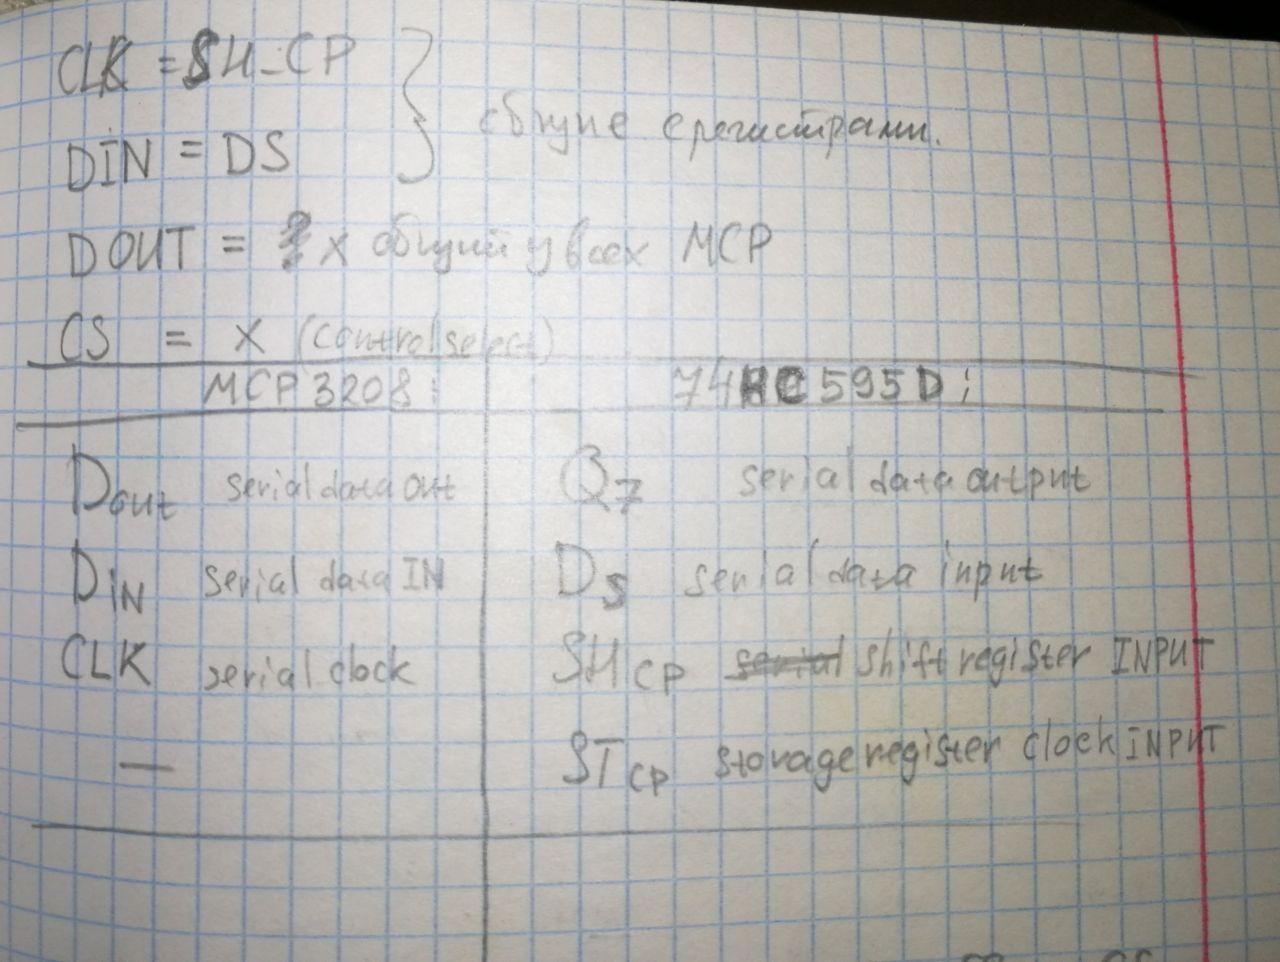 CLK = SH_CP
DIN = DS
общие с регистрами.
DOUT = X общий у всех MCP
CS = X (control select)
MCP 3208: 74HC595D:
Dout serial data out Q7 serial data output
DIN serial data IN DS serial data input
CLK serial clock SHCP shift register INPUT
— STCP storage register clock INPUT